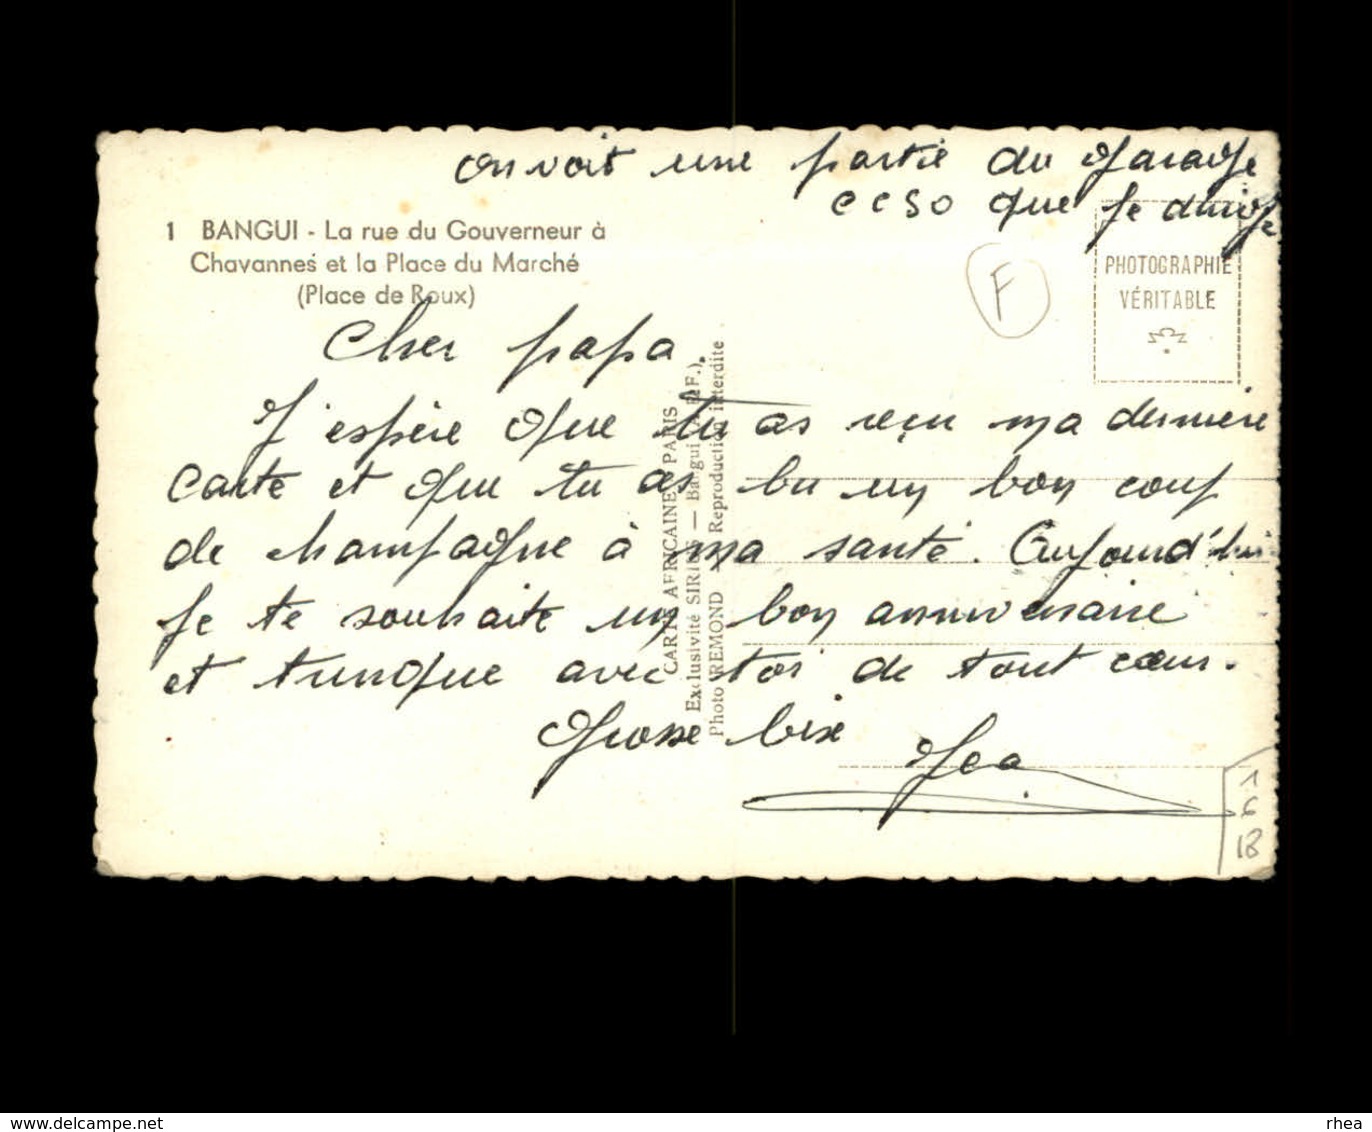 on voit une partie du garage
CCSO que je dirige
1 BANGUI - La rue du Gouverneur à
Chavannes et la Place du Marché
(Place de Roux)
F
PHOTOGRAPHIE
VÉRITABLE
Cher papa.
J'espère que tu as reçu ma dernière
carte et que tu as bu un bon coup
de champagne à ma santé. Aujourd'hui
je te souhaite un bon anniversaire
et trinque avec toi de tout cœur.
Grosse bise
CARTES AFRICAINES PARIS
Exclusivité SIRIUS — Bangui (A.E.F.).
Photo REMOND Reproduction interdite
1
6
18
www.delcampe.net
rhea